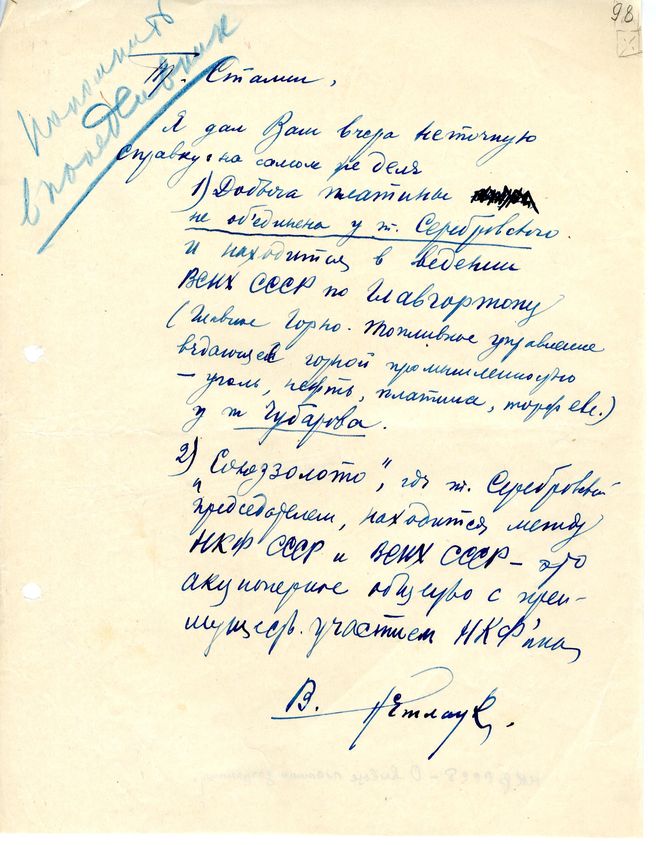 98
Напомнить
в понедельник
Т. Сталин,
Я дал Вам вчера неточную
справку: на самом же деле
1) Добыча платины
не об'единена у т. Серебровского
и находится в ведении
ВСНХ СССР по Главгортопу
(Главное Горно-Топливное управление
ведающее горной промышленностью
– уголь, нефть, платина, торф etc.)
у т. Чубарова.
2) „Союззолото", где т. Серебровский
председателем, находится между
НКФ СССР и ВСНХ СССР – это
акционерное общество с преи-
муществ. участием НКФ'ина
В.